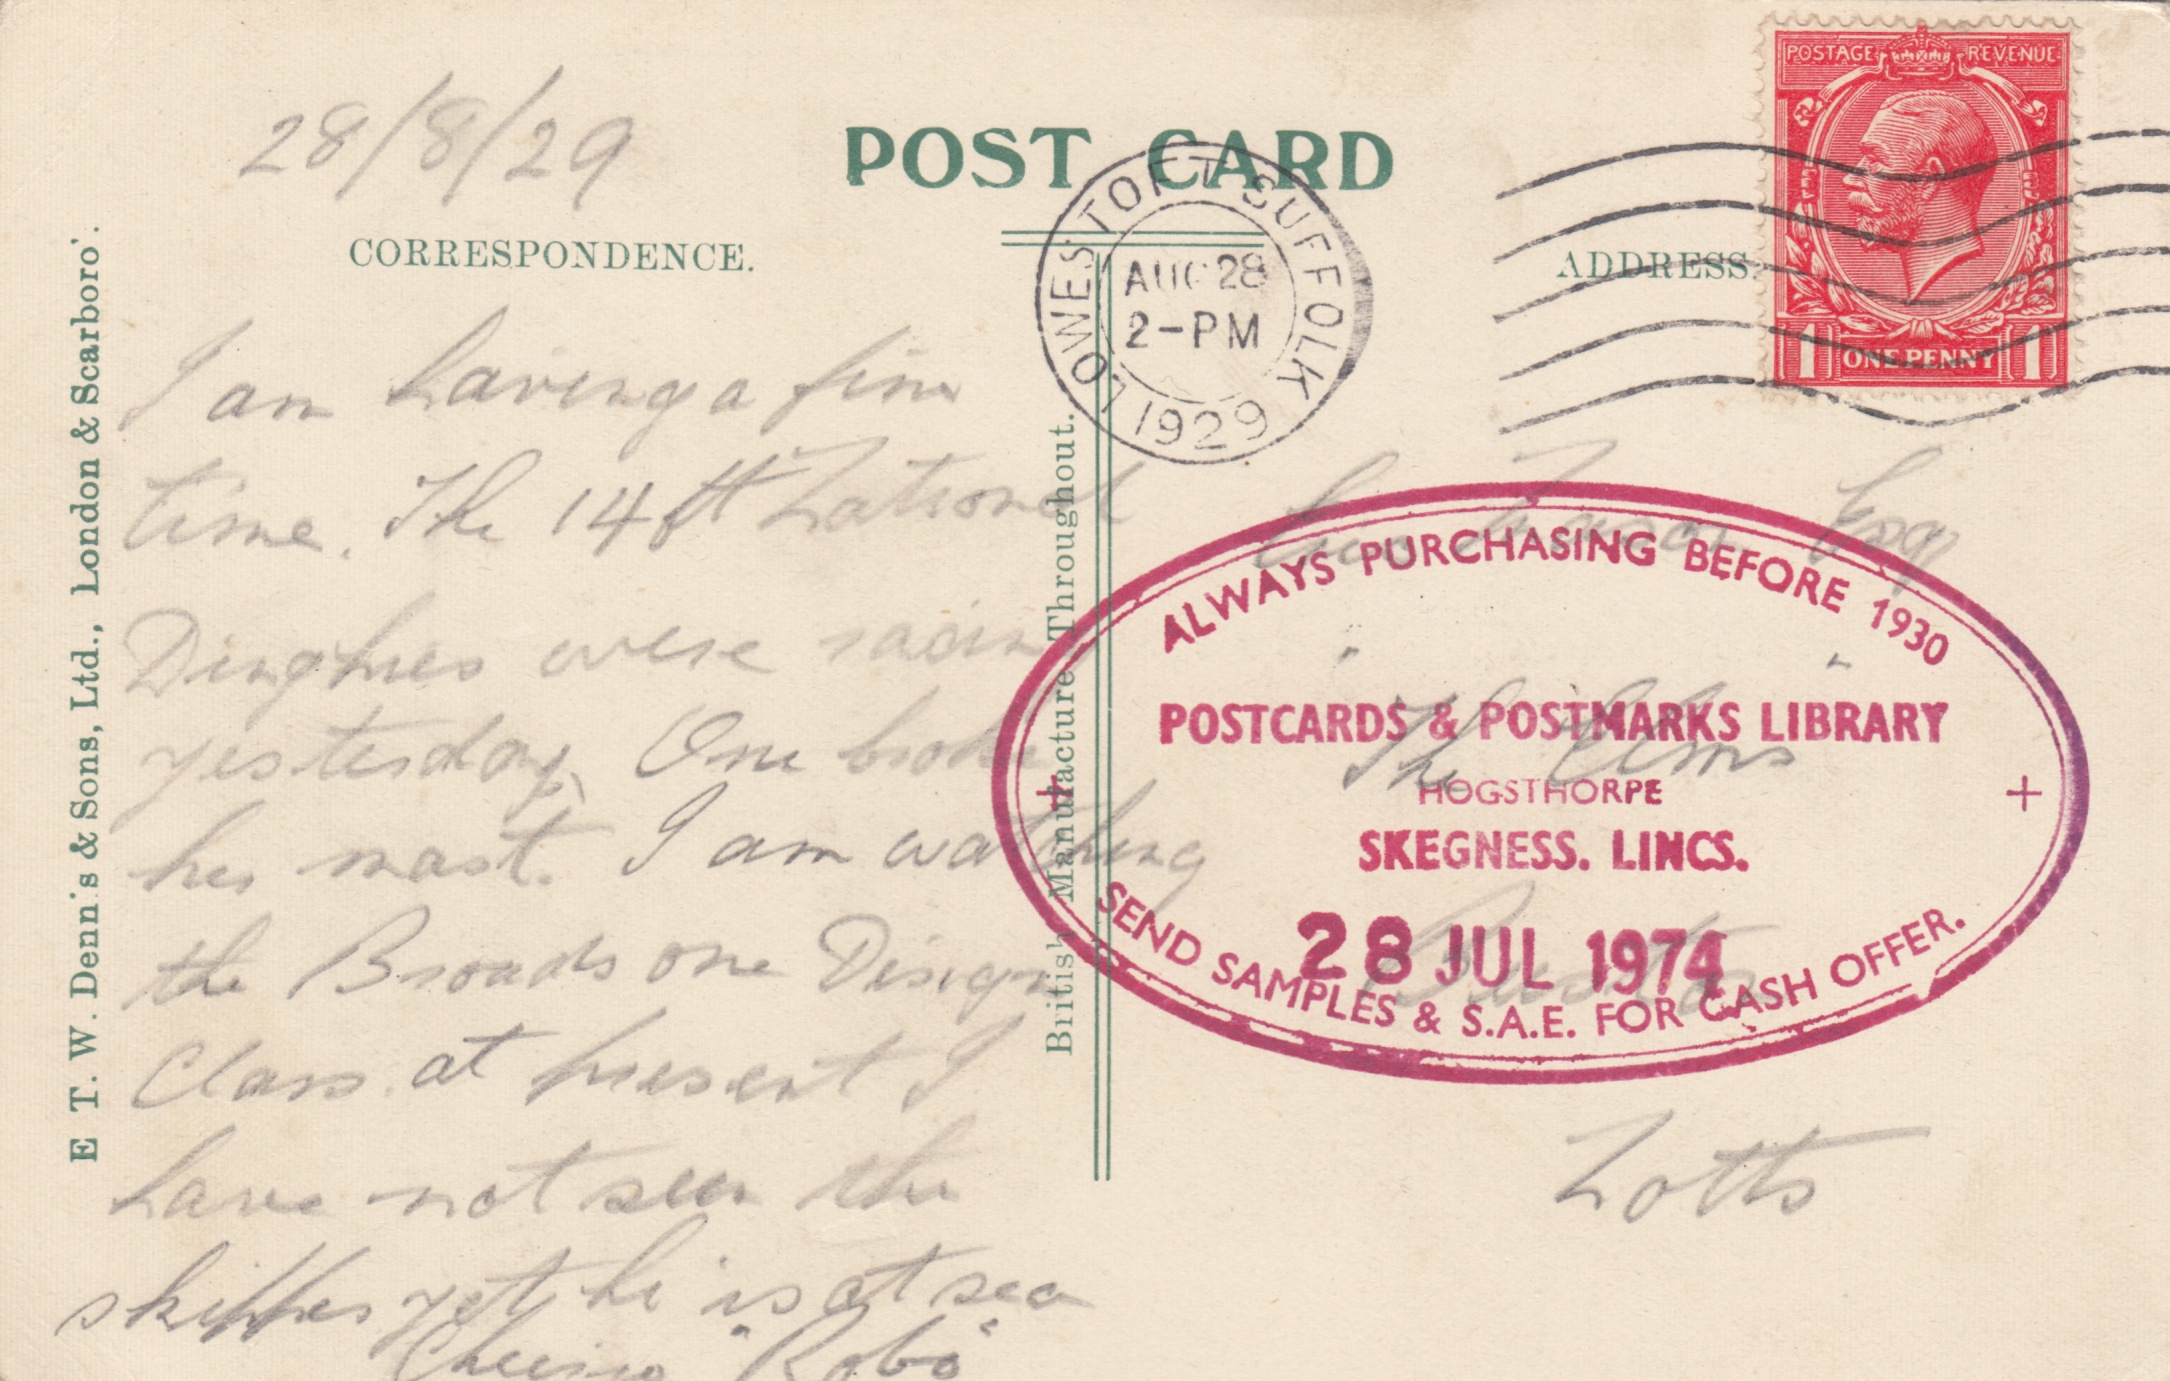 28/8/29
POST CARD
CORRESPONDENCE.
ADDRESS
POSTAGE REVENUE
1 ONE PENNY 1
LOWESTOFT SUFFOLK
AUG 28
2-PM
1929
E T. W. Denn's & Sons, Ltd., London & Scarboro'.
British Manufacture Throughout.
I am having a fine
time. The 14 ft National
Dinghies were racing
yesterday. One broke
her mast. I am watching
the Broads one Design
Class. at present I
have not seen the
skipper yet he is at sea
Cheerio "Robo"
Esq
"The Elms"
Notts
ALWAYS PURCHASING BEFORE 1930
POSTCARDS & POSTMARKS LIBRARY
HOGSTHORPE
SKEGNESS. LINCS.
28 JUL 1974
SEND SAMPLES & S.A.E. FOR CASH OFFER.